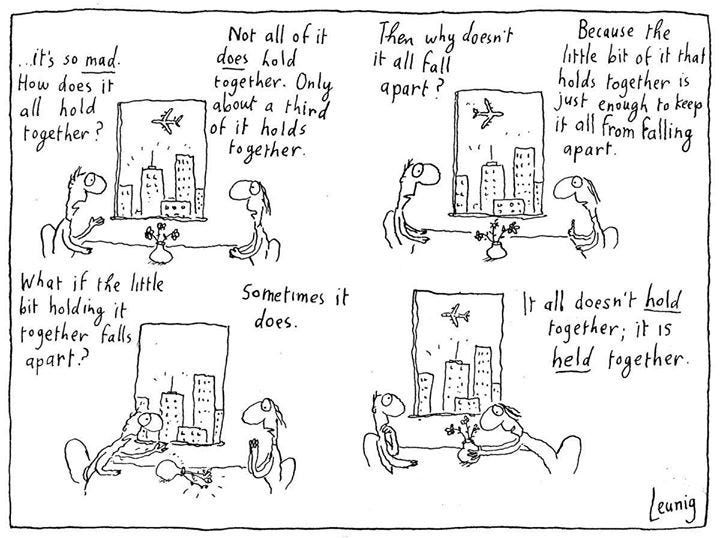 ...it's so mad.
How does it
all hold
together?
Not all of it
does hold
together. Only
about a third
of it holds
together.
Then why doesn't
it all fall
apart?
Because the
little bit of it that
holds together is
just enough to keep
it all from falling
apart.
What if the little
bit holding it
together falls
apart?
Sometimes it
does.
It all doesn't hold
together; it is
held together.
Leunig